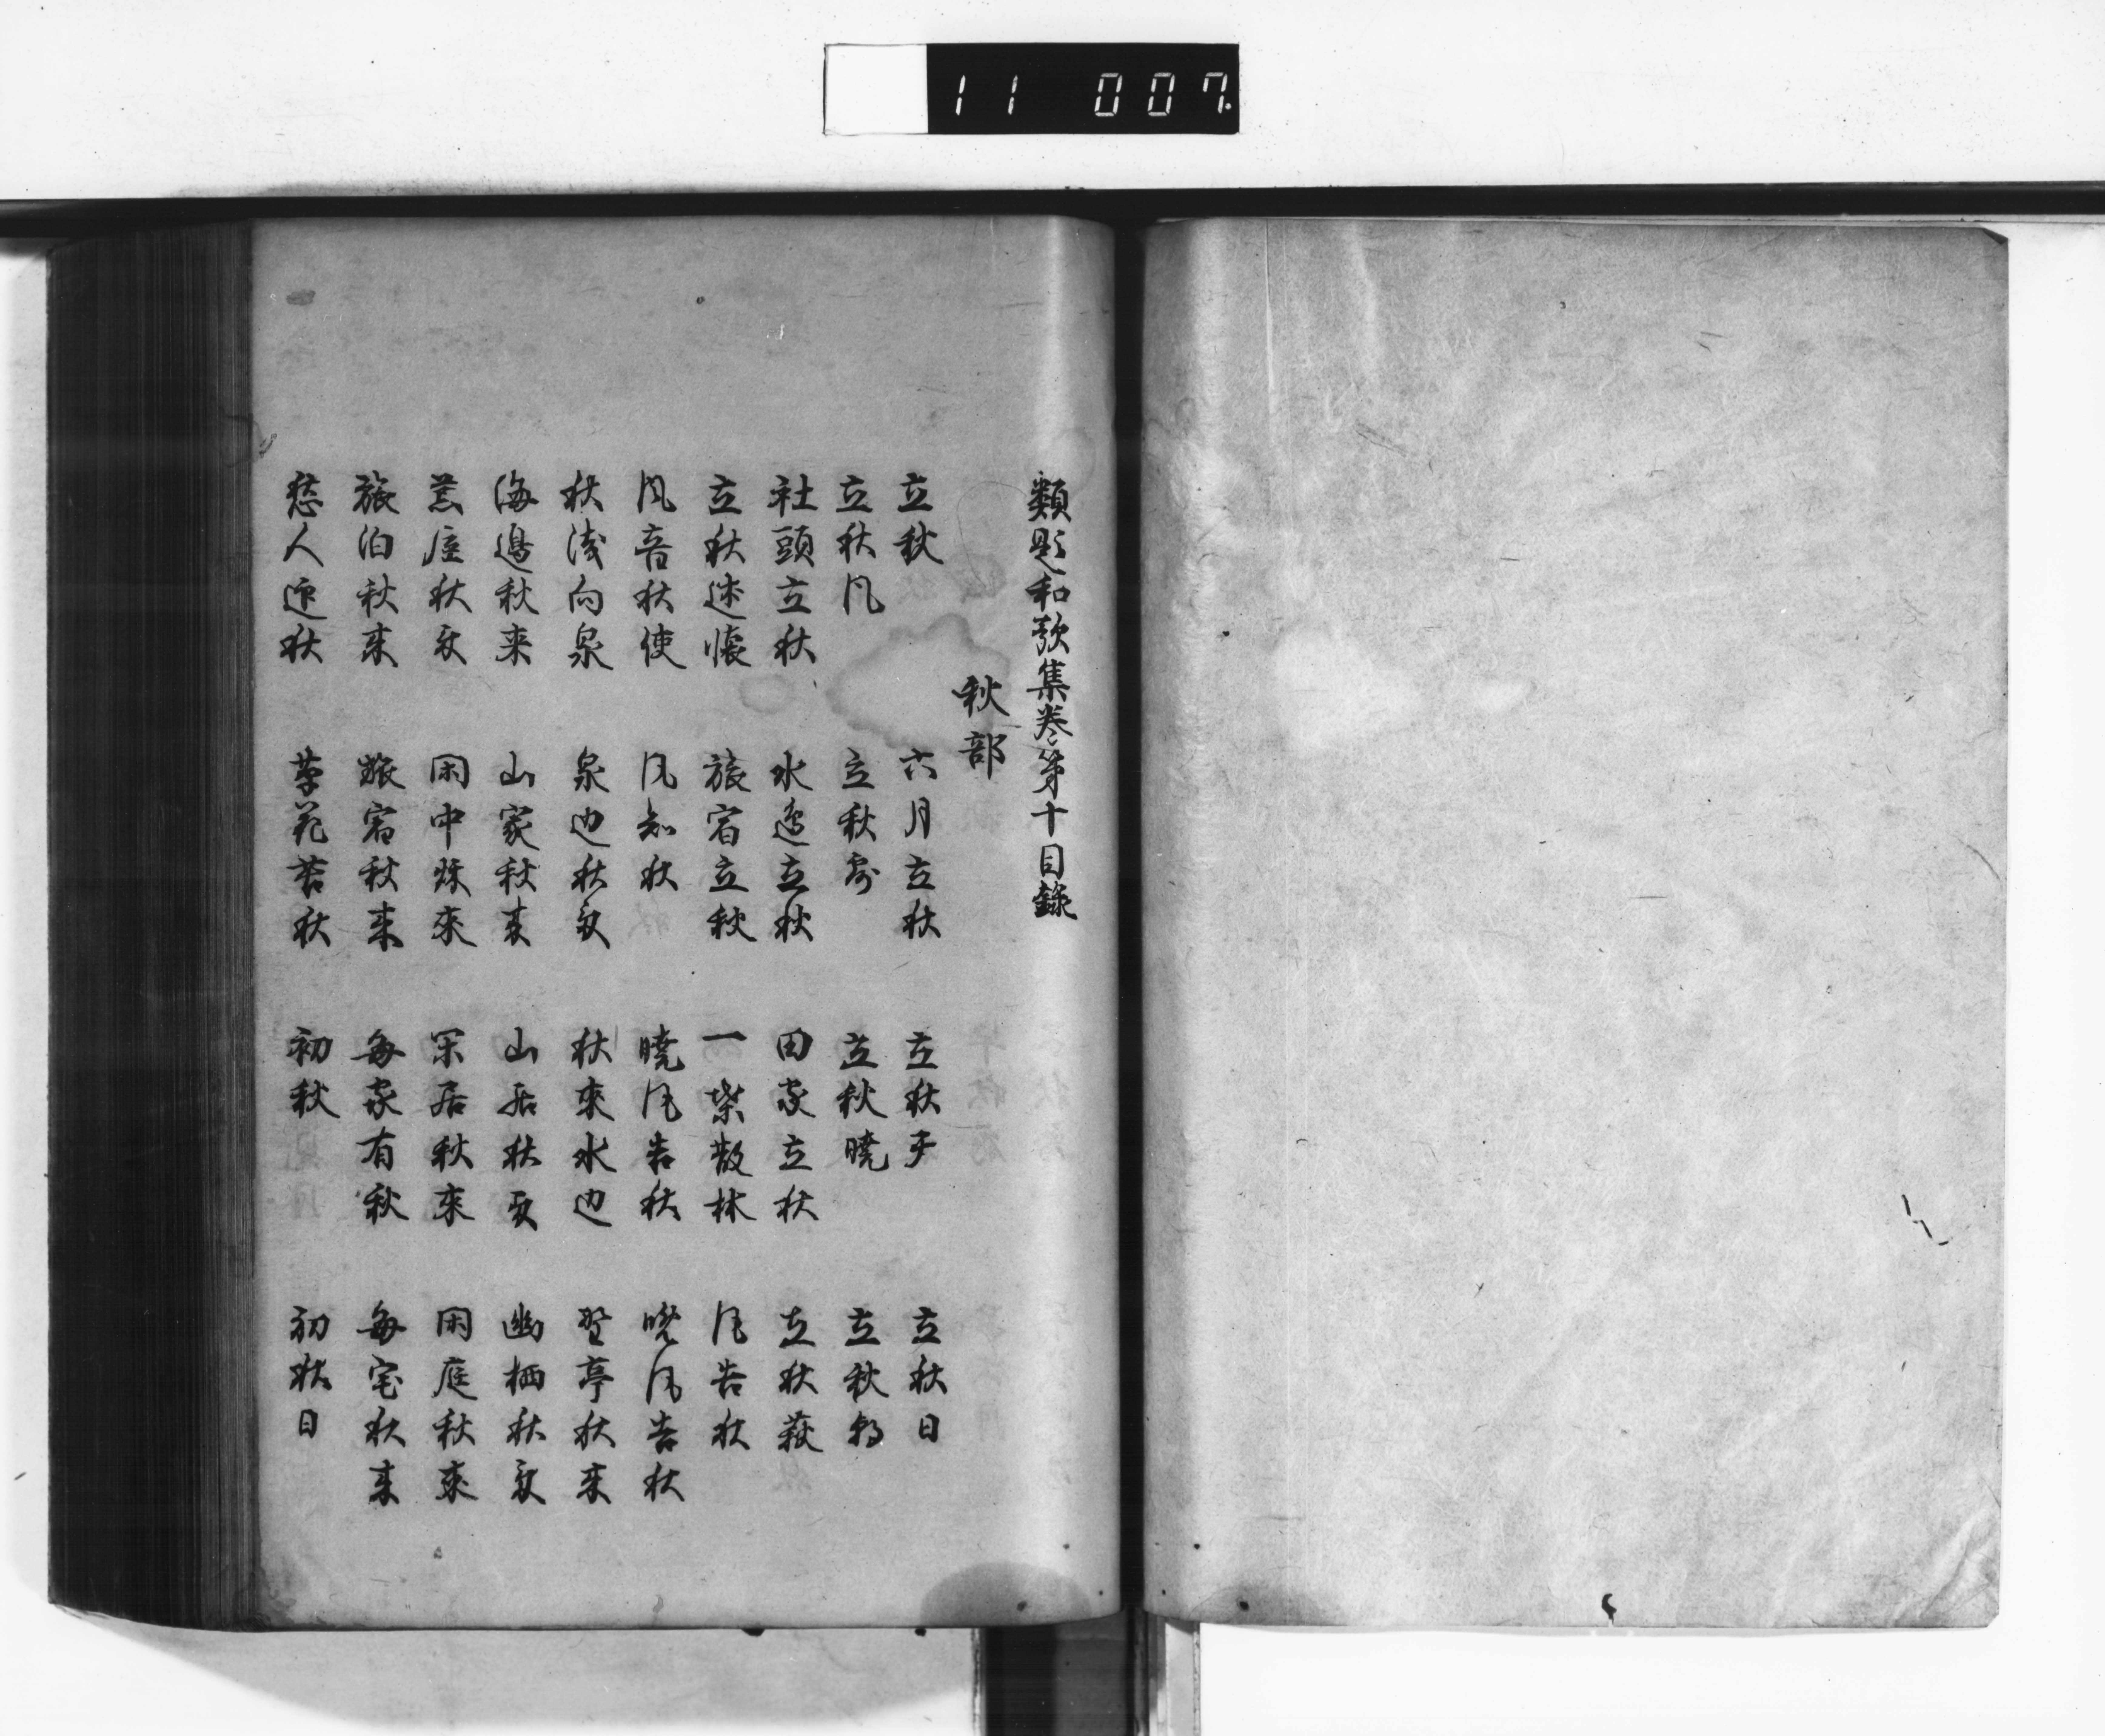 11 007
類題和歌集巻第十目録
秋部
立秋 六月立秋 立秋天 立秋日
立秋風 立秋露 立秋暁 立秋朝
社頭立秋 水辺立秋 田家立秋 立秋萩
立秋述懐 旅宿立秋 一葉散林 風告秋
風音秋使 風知秋 暁風告秋 晩風告秋
秋浅向泉 泉辺秋来 秋來水辺 野亭秋来
海邊秋来 山家秋来 山居秋来 幽栖秋来
荒屋秋来 閑中秋來 閑居秋來 閑庭秋来
旅泊秋来 旅宿秋来 毎家有秋 毎宅秋来
愁人迎秋 草花告秋 初秋 初秋日